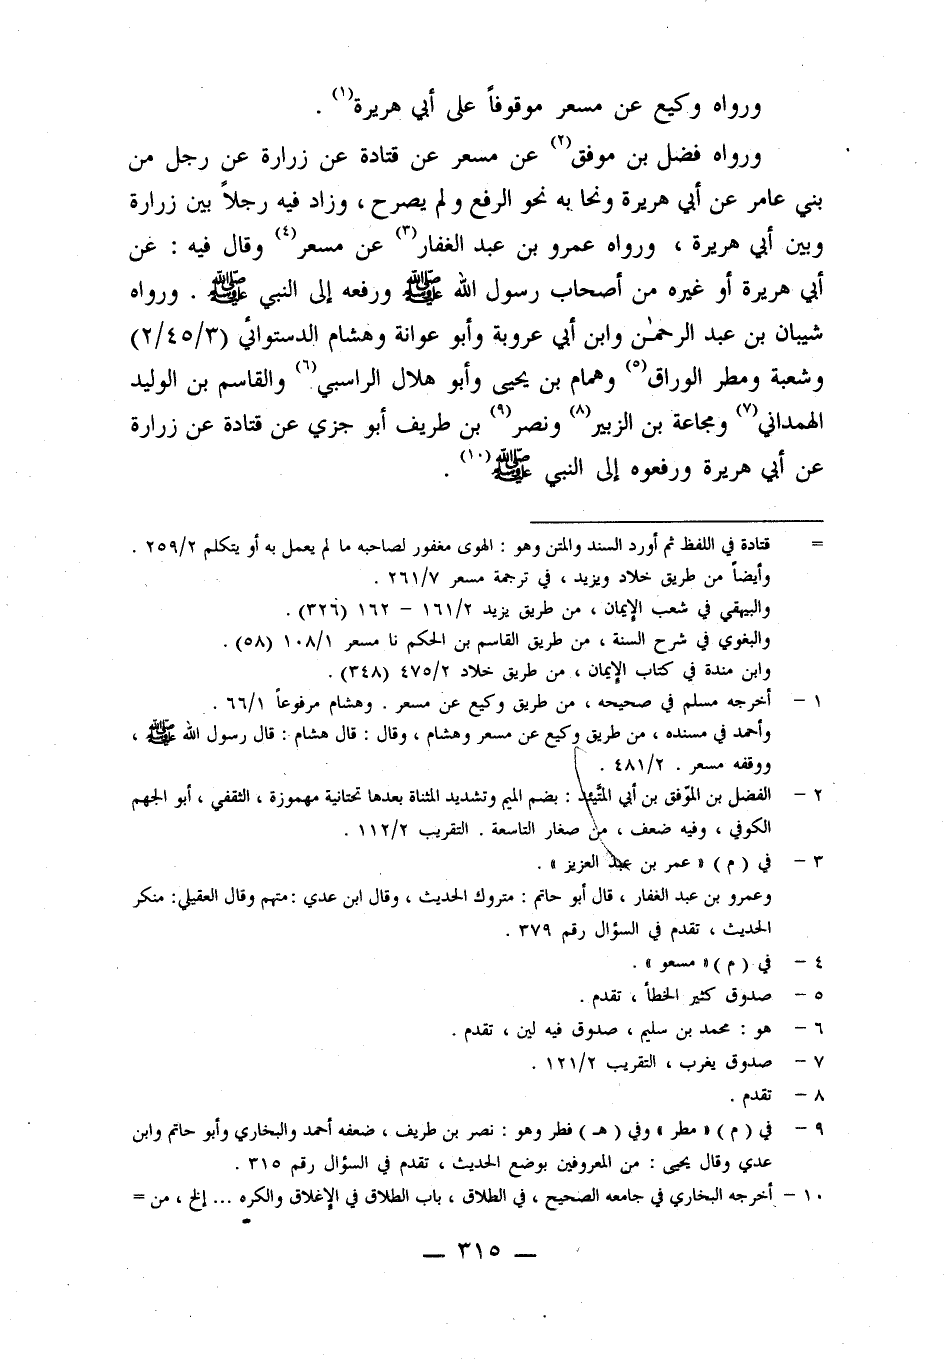 ورواه وكيع عن مسعر موقوفاً على أبي هريرة(١) .
ورواه فضل بن موفق(٢) عن مسعر عن قتادة عن زرارة عن رجل من
بني عامر عن أبي هريرة ونحا به نحو الرفع ولم يصرح ، وزاد فيه رجلاً بين زرارة
وبين أبي هريرة ، ورواه عمرو بن عبد الغفار(٣) عن مسعر(٤) وقال فيه : عن
أبي هريرة أو غيره من أصحاب رسول الله ﷺ ورفعه إلى النبي ﷺ . ورواه
شيبان بن عبد الرحمٰن وابن أبي عروبة وأبو عوانة وهشام الدستوائي (٢/٤٥/٣)
وشعبة ومطر الوراق(٥) وهمام بن يحيى وأبو هلال الراسبي(٦) والقاسم بن الوليد
الهمداني(٧) ومجاعة بن الزبير(٨) ونصر(٩) بن طريف أبو جزي عن قتادة عن زرارة
عن أبي هريرة ورفعوه إلى النبي ﷺ(١٠) .
= قتادة في اللفظ ثم أورد السند والمتن وهو : الهوى مغفور لصاحبه ما لم يعمل به أو يتكلم ٢٥٩/٢ .
وأيضاً من طريق خلاد ويزيد ، في ترجمة مسعر ٢٦١/٧ .
والبيهقي في شعب الإيمان ، من طريق يزيد ١٦١/٢ – ١٦٢ (٣٢٦) .
والبغوي في شرح السنة ، من طريق القاسم بن الحكم نا مسعر ١٠٨/١ (٥٨) .
وابن مندة في كتاب الإيمان ، من طريق خلاد ٤٧٥/٢ (٣٤٨) .
١ – أخرجه مسلم في صحيحه ، من طريق وكيع عن مسعر . وهشام مرفوعاً ٦٦/١ .
وأحمد في مسنده ، من طريق وكيع عن مسعر وهشام ، وقال : قال هشام : قال رسول الله ﷺ ،
ووقفه مسعر . ٤٨١/٢ .
٢ – الفضل بن الموّفق بن أبي المتَّيئد : بضم الميم وتشديد المثناة بعدها تحتانية مهموزة ، الثقفي ، أبو الجهم
الكوفي ، وفيه ضعف ، من صغار التاسعة . التقريب ١١٢/٢ .
٣ – في ( م ) « عمر بن عبد العزيز » .
وعمرو بن عبد الغفار ، قال أبو حاتم : متروك الحديث ، وقال ابن عدي :متهم وقال العقيلي: منكر
الحديث ، تقدم في السؤال رقم ٣٧٩ .
٤ – في ( م ) « مسعو » .
٥ – صدوق كثير الخطأ ، تقدم .
٦ – هو : محمد بن سليم ، صدوق فيه لين ، تقدم .
٧ – صدوق يغرب ، التقريب ١٢١/٢ .
٨ – تقدم .
٩ – في ( م ) « مطر » وفي ( هـ ) فطر وهو : نصر بن طريف ، ضعفه أحمد والبخاري وأبو حاتم وابن
عدي وقال يحيى : من المعروفين بوضع الحديث ، تقدم في السؤال رقم ٣١٥ .
١٠ – أخرجه البخاري في جامعه الصحيح ، في الطلاق ، باب الطلاق في الإغلاق والكره ... إلخ ، من =
— ٣١٥ —